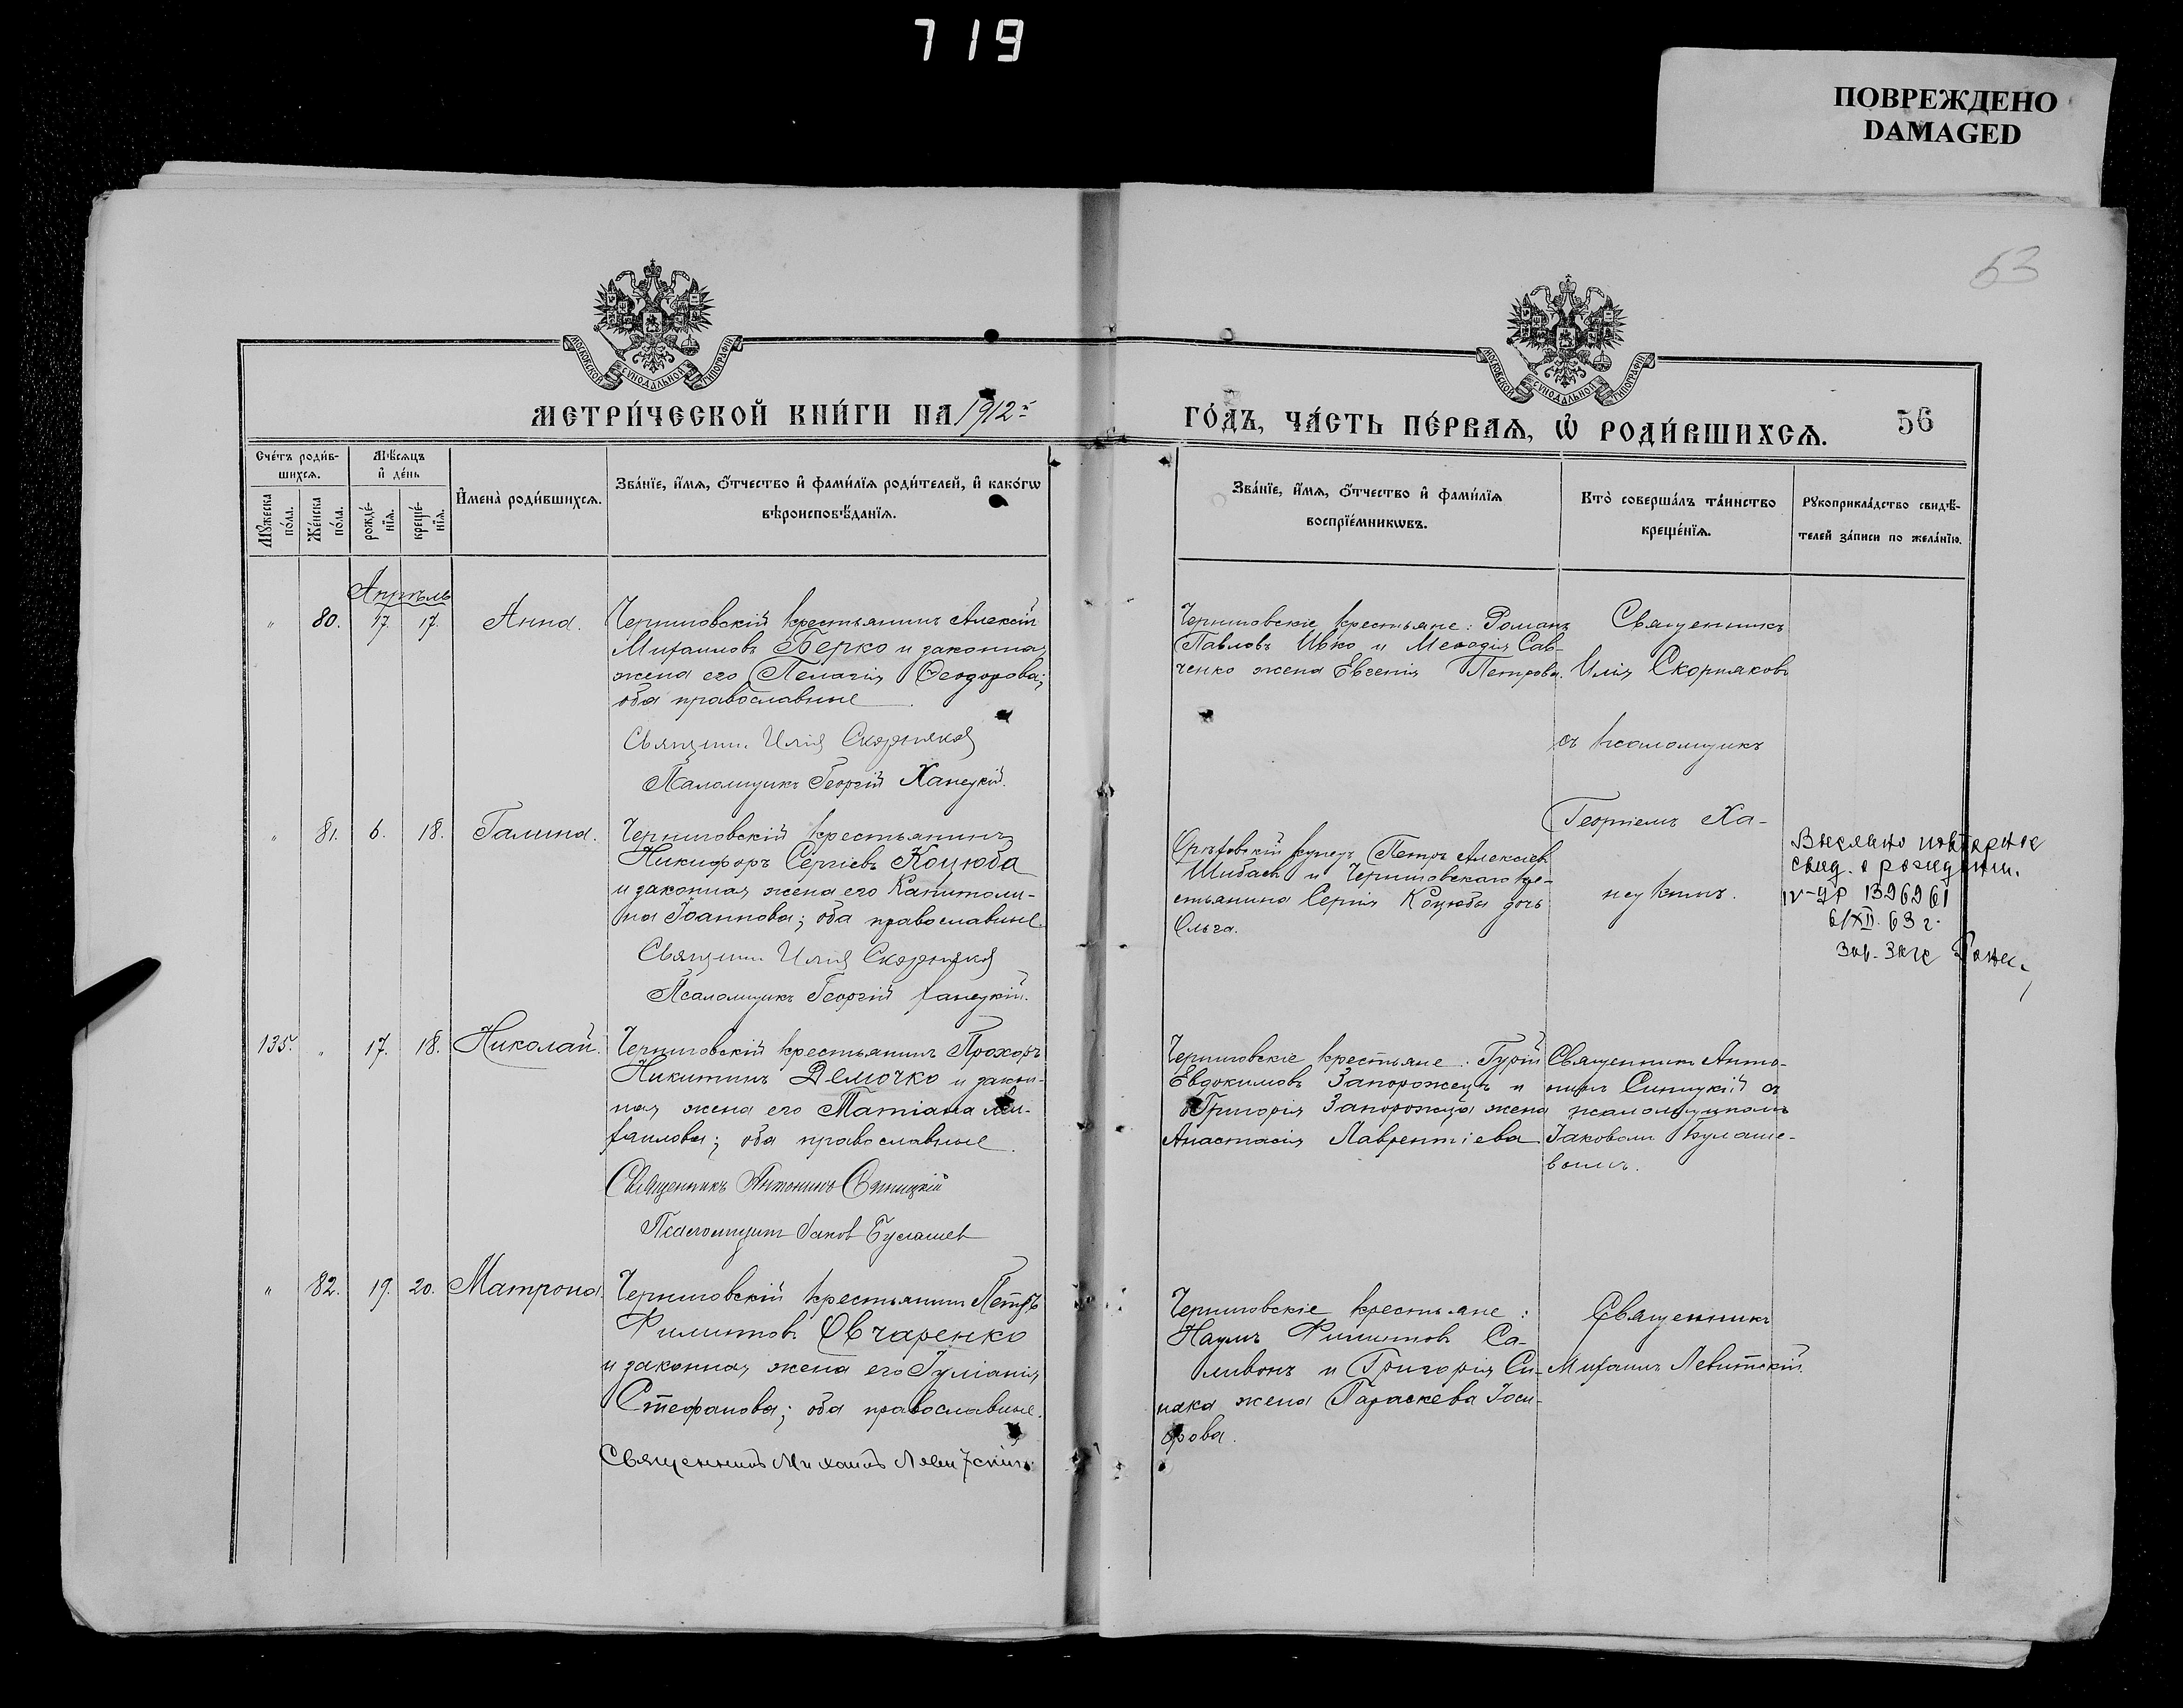 719
ПОВРЕЖДЕНО
DAMAGED
53
МОСКОВСКОЙ СѴНОДАЛЬНОЙ ТИПОГРАФІИ
МОСКОВСКОЙ СѴНОДАЛЬНОЙ ТИПОГРАФІИ
МЕТРИ́ЧЕСКОЙ КНИ́ГИ НА 1912й
ГО́ДЪ, ЧА́СТЬ ПЕ́РВАѦ, Ѡ РОДИ́ВШИХСѦ.
56
Сче́тъ роди́в-
шихсѧ.
Мѣ́сѧцъ
и де́нь
Мꙋ́жеска по́ла.
Же́нска по́ла.
рожде́-
нїѧ.
креще́-
нїѧ.
Имена̀ роди́вшихсѧ.
Зва́нїе, и́мѧ, ѻ́тчество и фами́лїѧ роди́телей, и како́гѡ
вѣроисповѣ́данїѧ.
Зва́нїе, и́мѧ, ѻ́тчество и фами́лїѧ
воспрїе́мникѡвъ.
Кто̀ соверша́лъ та́инство
креще́нїѧ.
Рꙋкоприкла́дство свидѣ́-
телей за́писи по жела́нїю.
Апрѣль
" 80. 17. 17. Анна.
Черниговскій крестьянинъ Алексій
Михаиловъ Берко и законная
жена его Пелагія Ѳеодорова;
оба православные.
Священ. Илія Скорняковъ
Псаломщикъ Георгій Ханецкій.
Черниговскіе крестьяне: Романъ
Павловъ Ивко и Меѳодія Сав-
ченко жена Евгенія Петрова.
Священникъ
Илія Скорняковъ
съ псаломщикъ
Георгіемъ Ха-
нецкимъ.
" 81. 6. 18. Галина.
Черниговскій крестьянинъ
Никифоръ Сергіевъ Коцюба
и законная жена его Капитоли-
на Іоаннова; оба православные.
Священ. Илія Скорняковъ
Псаломщикъ Георгій Ханецкій.
Орѣховскій купецъ Петръ Алексіевъ
Шибаевъ и Черниговскаго кре-
стьянина Сергія Коцюбы дочь
Ольга.
Выслано повторное
свид. о рождении.
IV-ЯР 1396961
6/XII.63 г.
Зав.
135. " 17. 18. Николай.
Черниговскій крестьянинъ Прохоръ
Никитинъ Демочко и закон-
ная жена его Татіана Ми-
хаилова; оба православные.
Священникъ Антонинъ Синицкій
Псаломщикъ Іаков Булашев
Черниговскіе крестьяне: Гурій
Евдокимовъ Запорожецъ и
Григорія Запорожца жена
Анастасія Лаврентіева
Священник Анто-
нинъ Синицкій съ
псаломщикомъ
Іаковомъ Булаше-
вымъ.
" 82. 19. 20. Матрона.
Черниговскій крестьянин Петръ
Филиповъ Овчаренко
и законная жена его Іуліанія
Стефанова; оба православные.
Священникъ Михаилъ Левитскій.
Черниговскіе крестьяне:
Наумъ Филиповъ Са-
ливонъ и Григорія Си-
нака жена Параскева Іоси-
фова.
Священникъ
Михаилъ Левитскій.